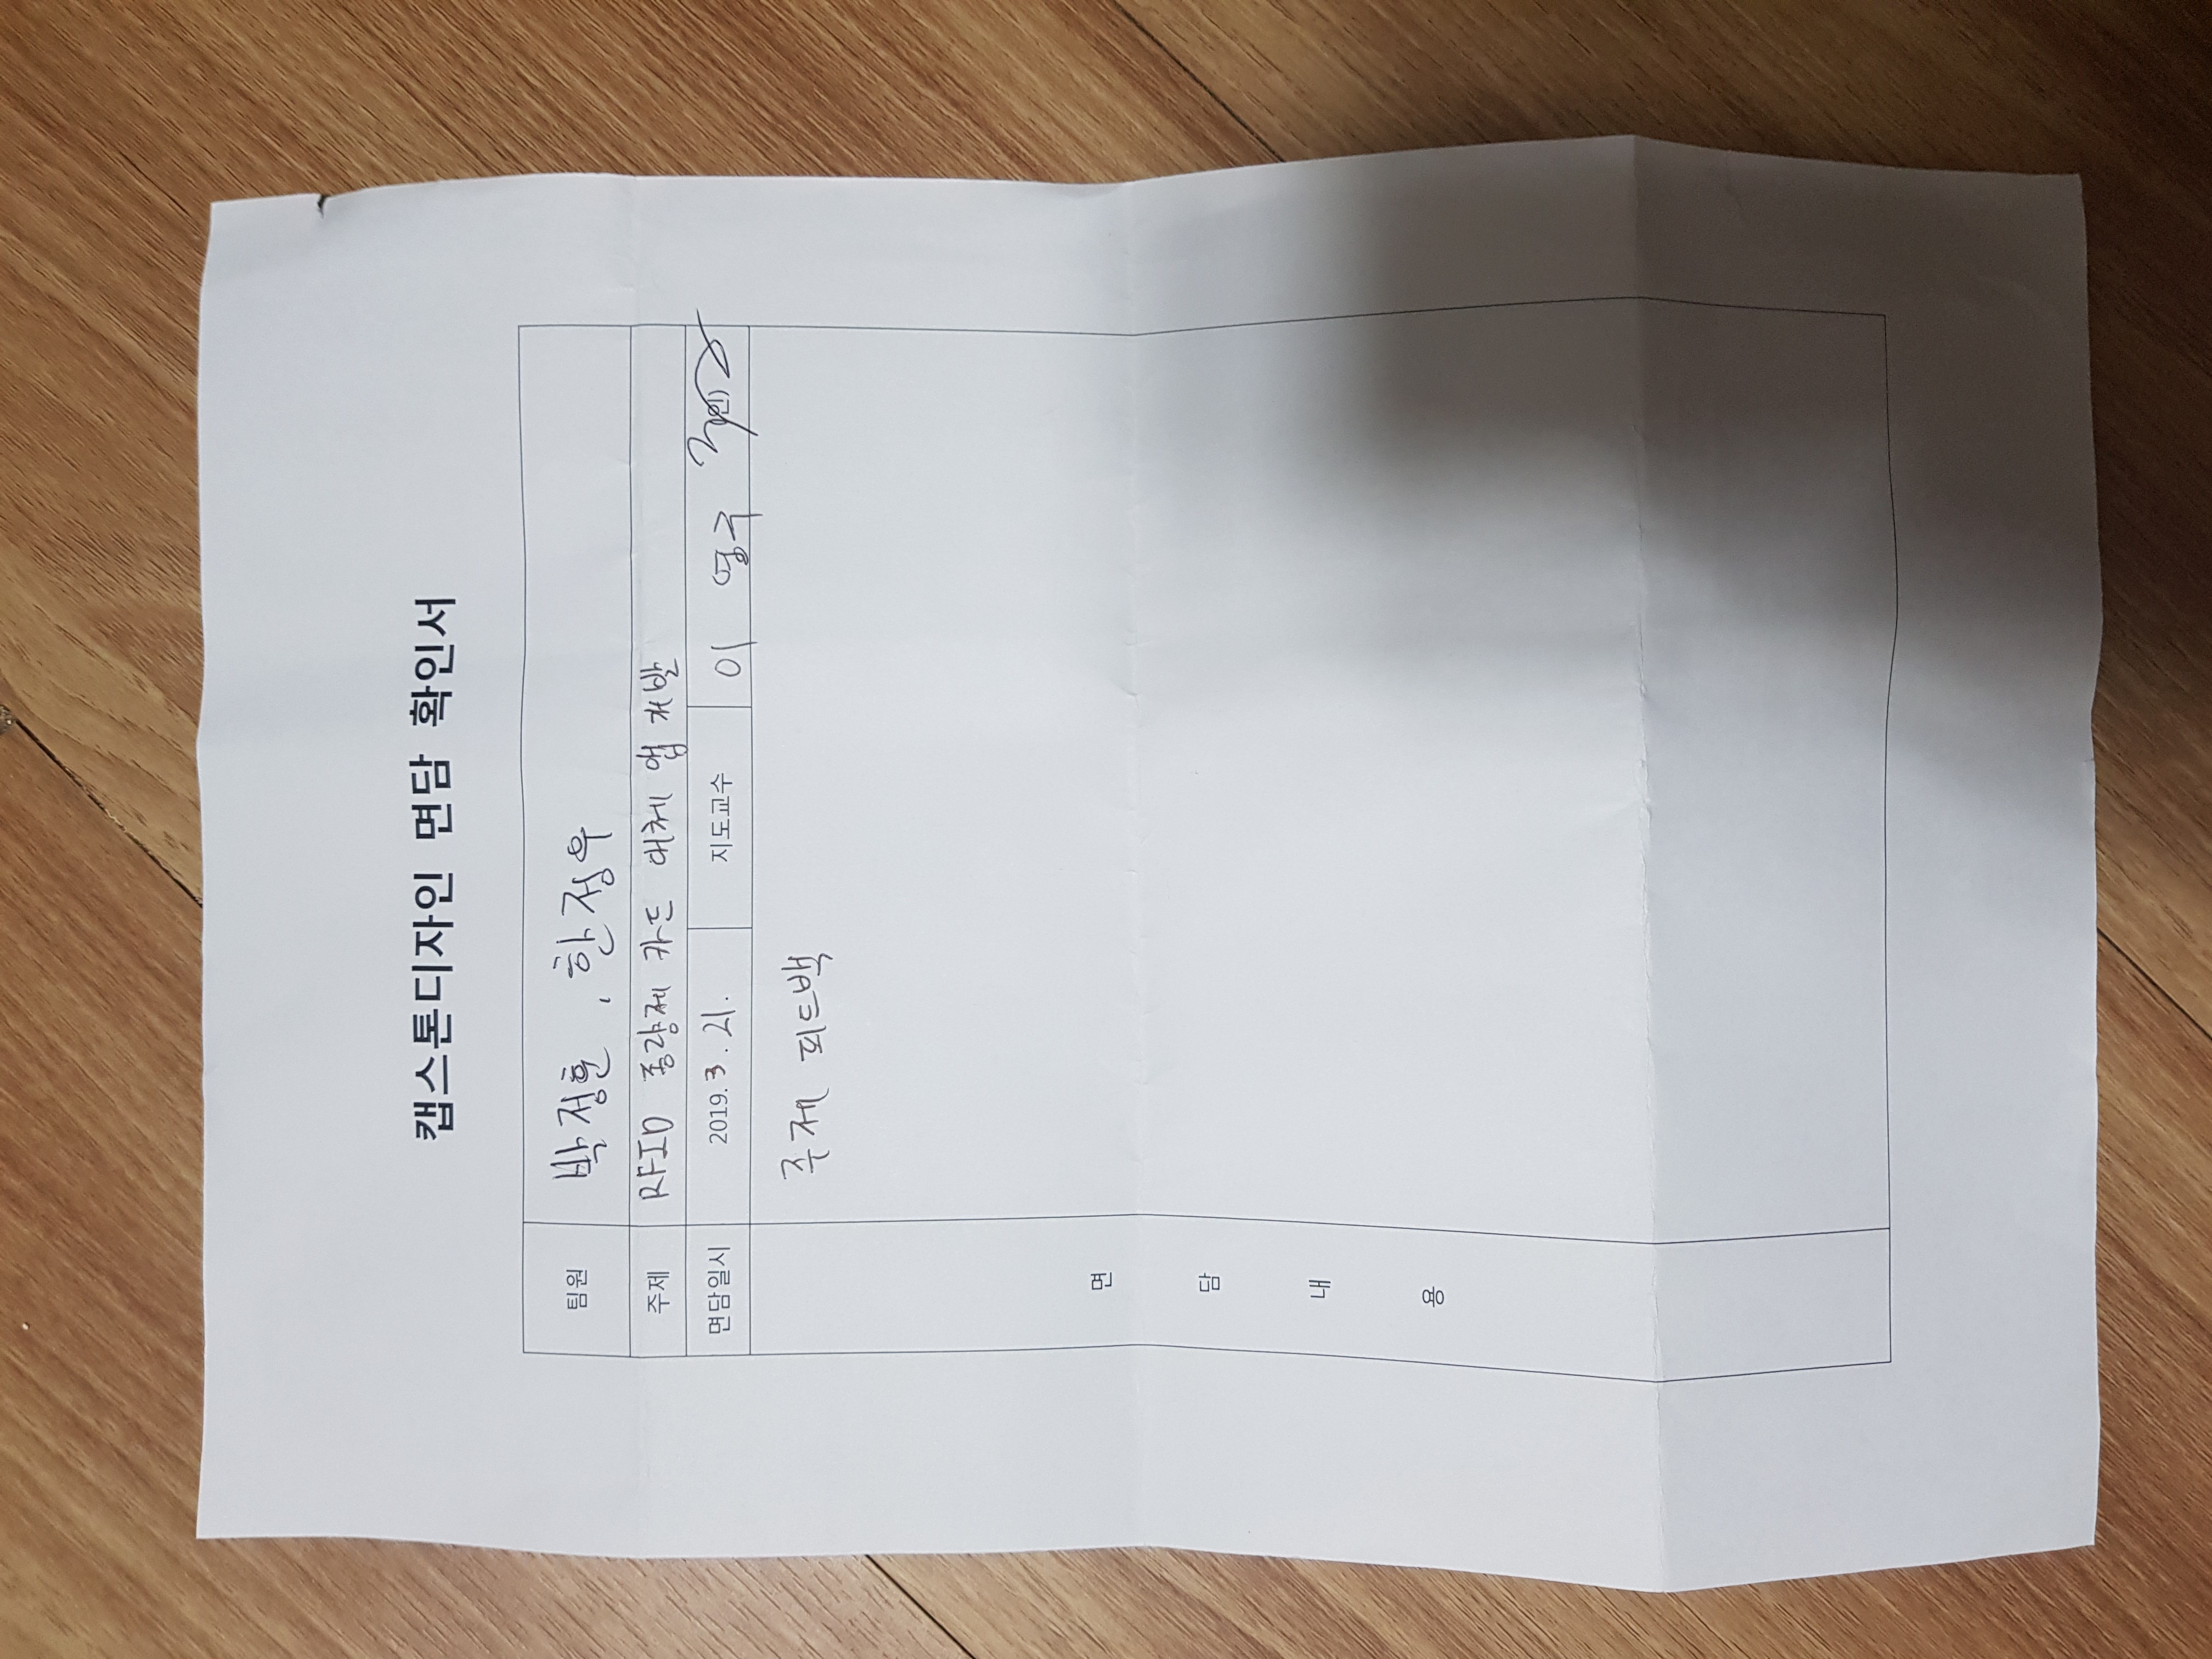 캡스톤디자인 면담 확인서
팀원 박정훈, 한정우
주제 RFID 종량제 카드 대체 앱 개발
면담일시 2019. 3. 21. 지도교수 이 영구 (인)
주제 피드백
면
담
내
용